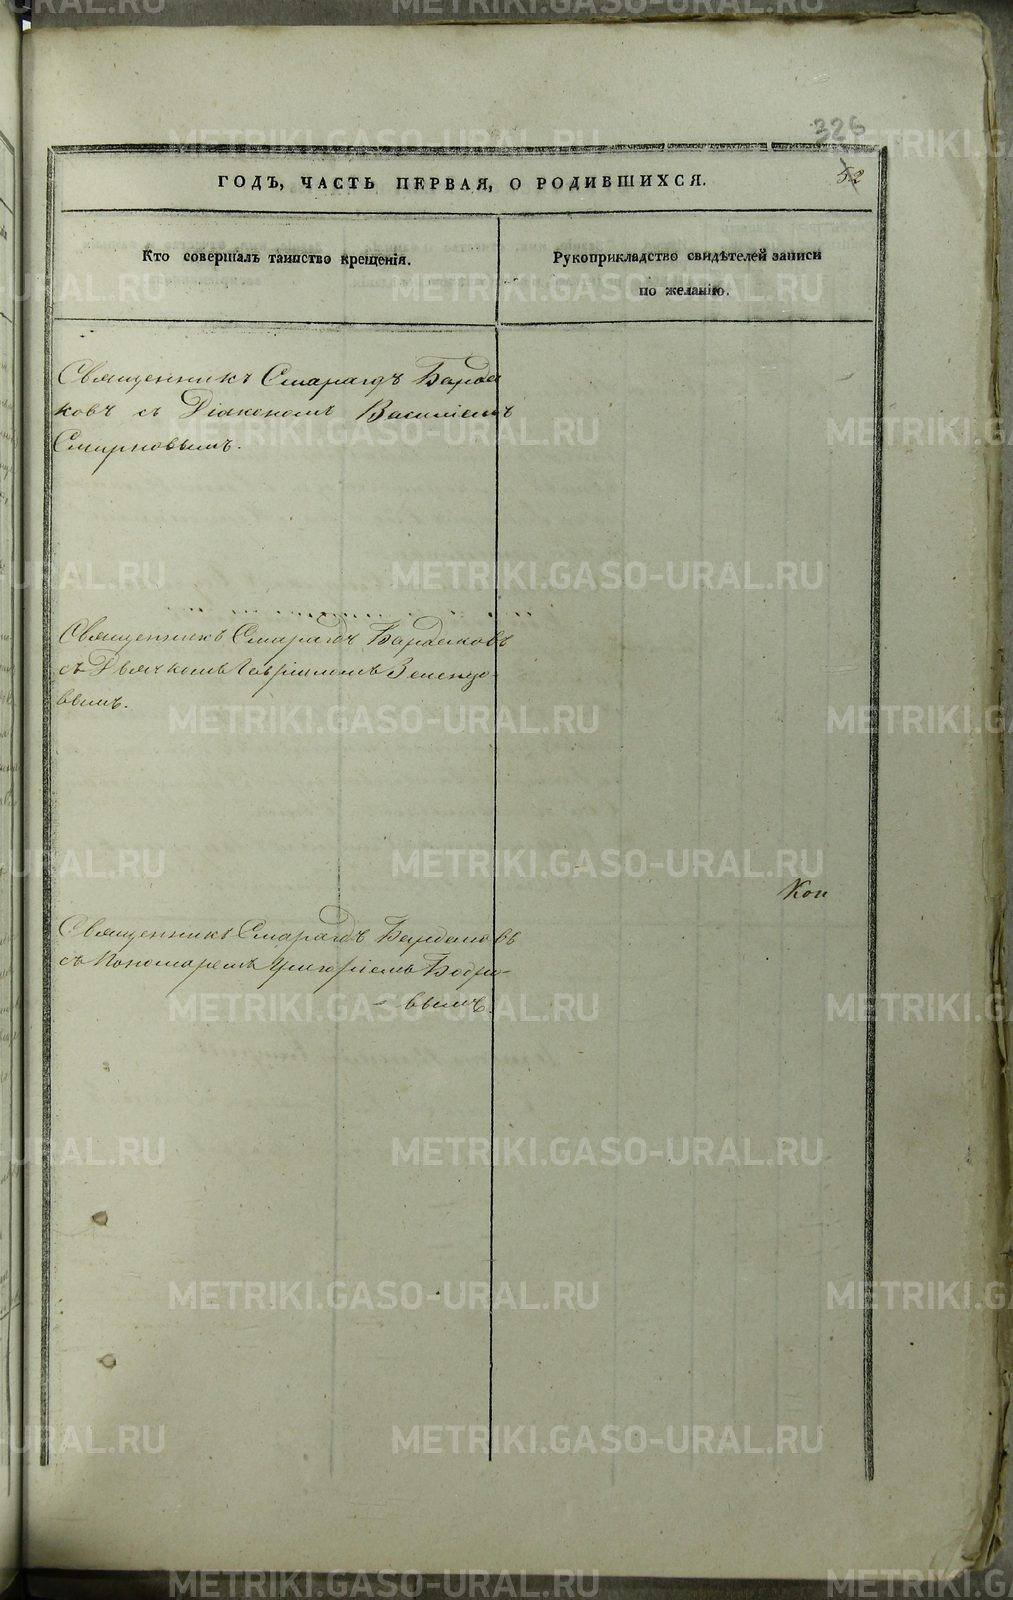 326
52
ГОДЪ, ЧАСТЬ ПЕРВАЯ, О РОДИВШИХСЯ.
Кто совершалъ таинство крещенія.
Рукоприкладство свидѣтелей записи
по желанію.
Священникъ Смарагдъ Бардa
ковъ съ Діакономъ Василіемъ
Смирновымъ.
Священникъ Смарагдъ Бардаковъ
съ Дьячкомъ Гавріиломъ
вымъ.
Кон
Священникъ Смарагдъ Бардаковъ
съ Пономаремъ Григоріемъ Бодро-
- вымъ.
METRIKI.GASO-URAL.RU